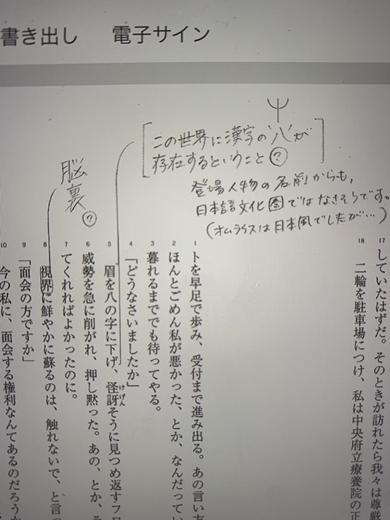 書き出し　電子サイン
この世界に漢字の“八”が
存在するということ?
登場人物の名前からも、
日本語文化圏ではなさそうです。
(オムライスは日本風でしたが…)
脳裏?
17 していたはずだ。そのときが訪れたら我々は尊厳
18 二輪を駐車場につけ、私は中央府立療養院の正
1 トを早足で歩み、受付まで進み出る。あの言い方
2 ほんとごめん私が悪かった、とか、なんだってい
3 暮れるまででも待ってやる。
4 「どうなさいましたか」
5 眉を八の字に下げ、怪訝そうに見つめ返すフロ
けげん
6 威勢を急に削がれ、押し黙った。あの、とか、そ
7 てくれればよかったのに。
8 視界に鮮やかに蘇るのは、触れないで、と言っ
9 「面会の方ですか」
10 今の私に、面会する権利なんてあるのだろうか